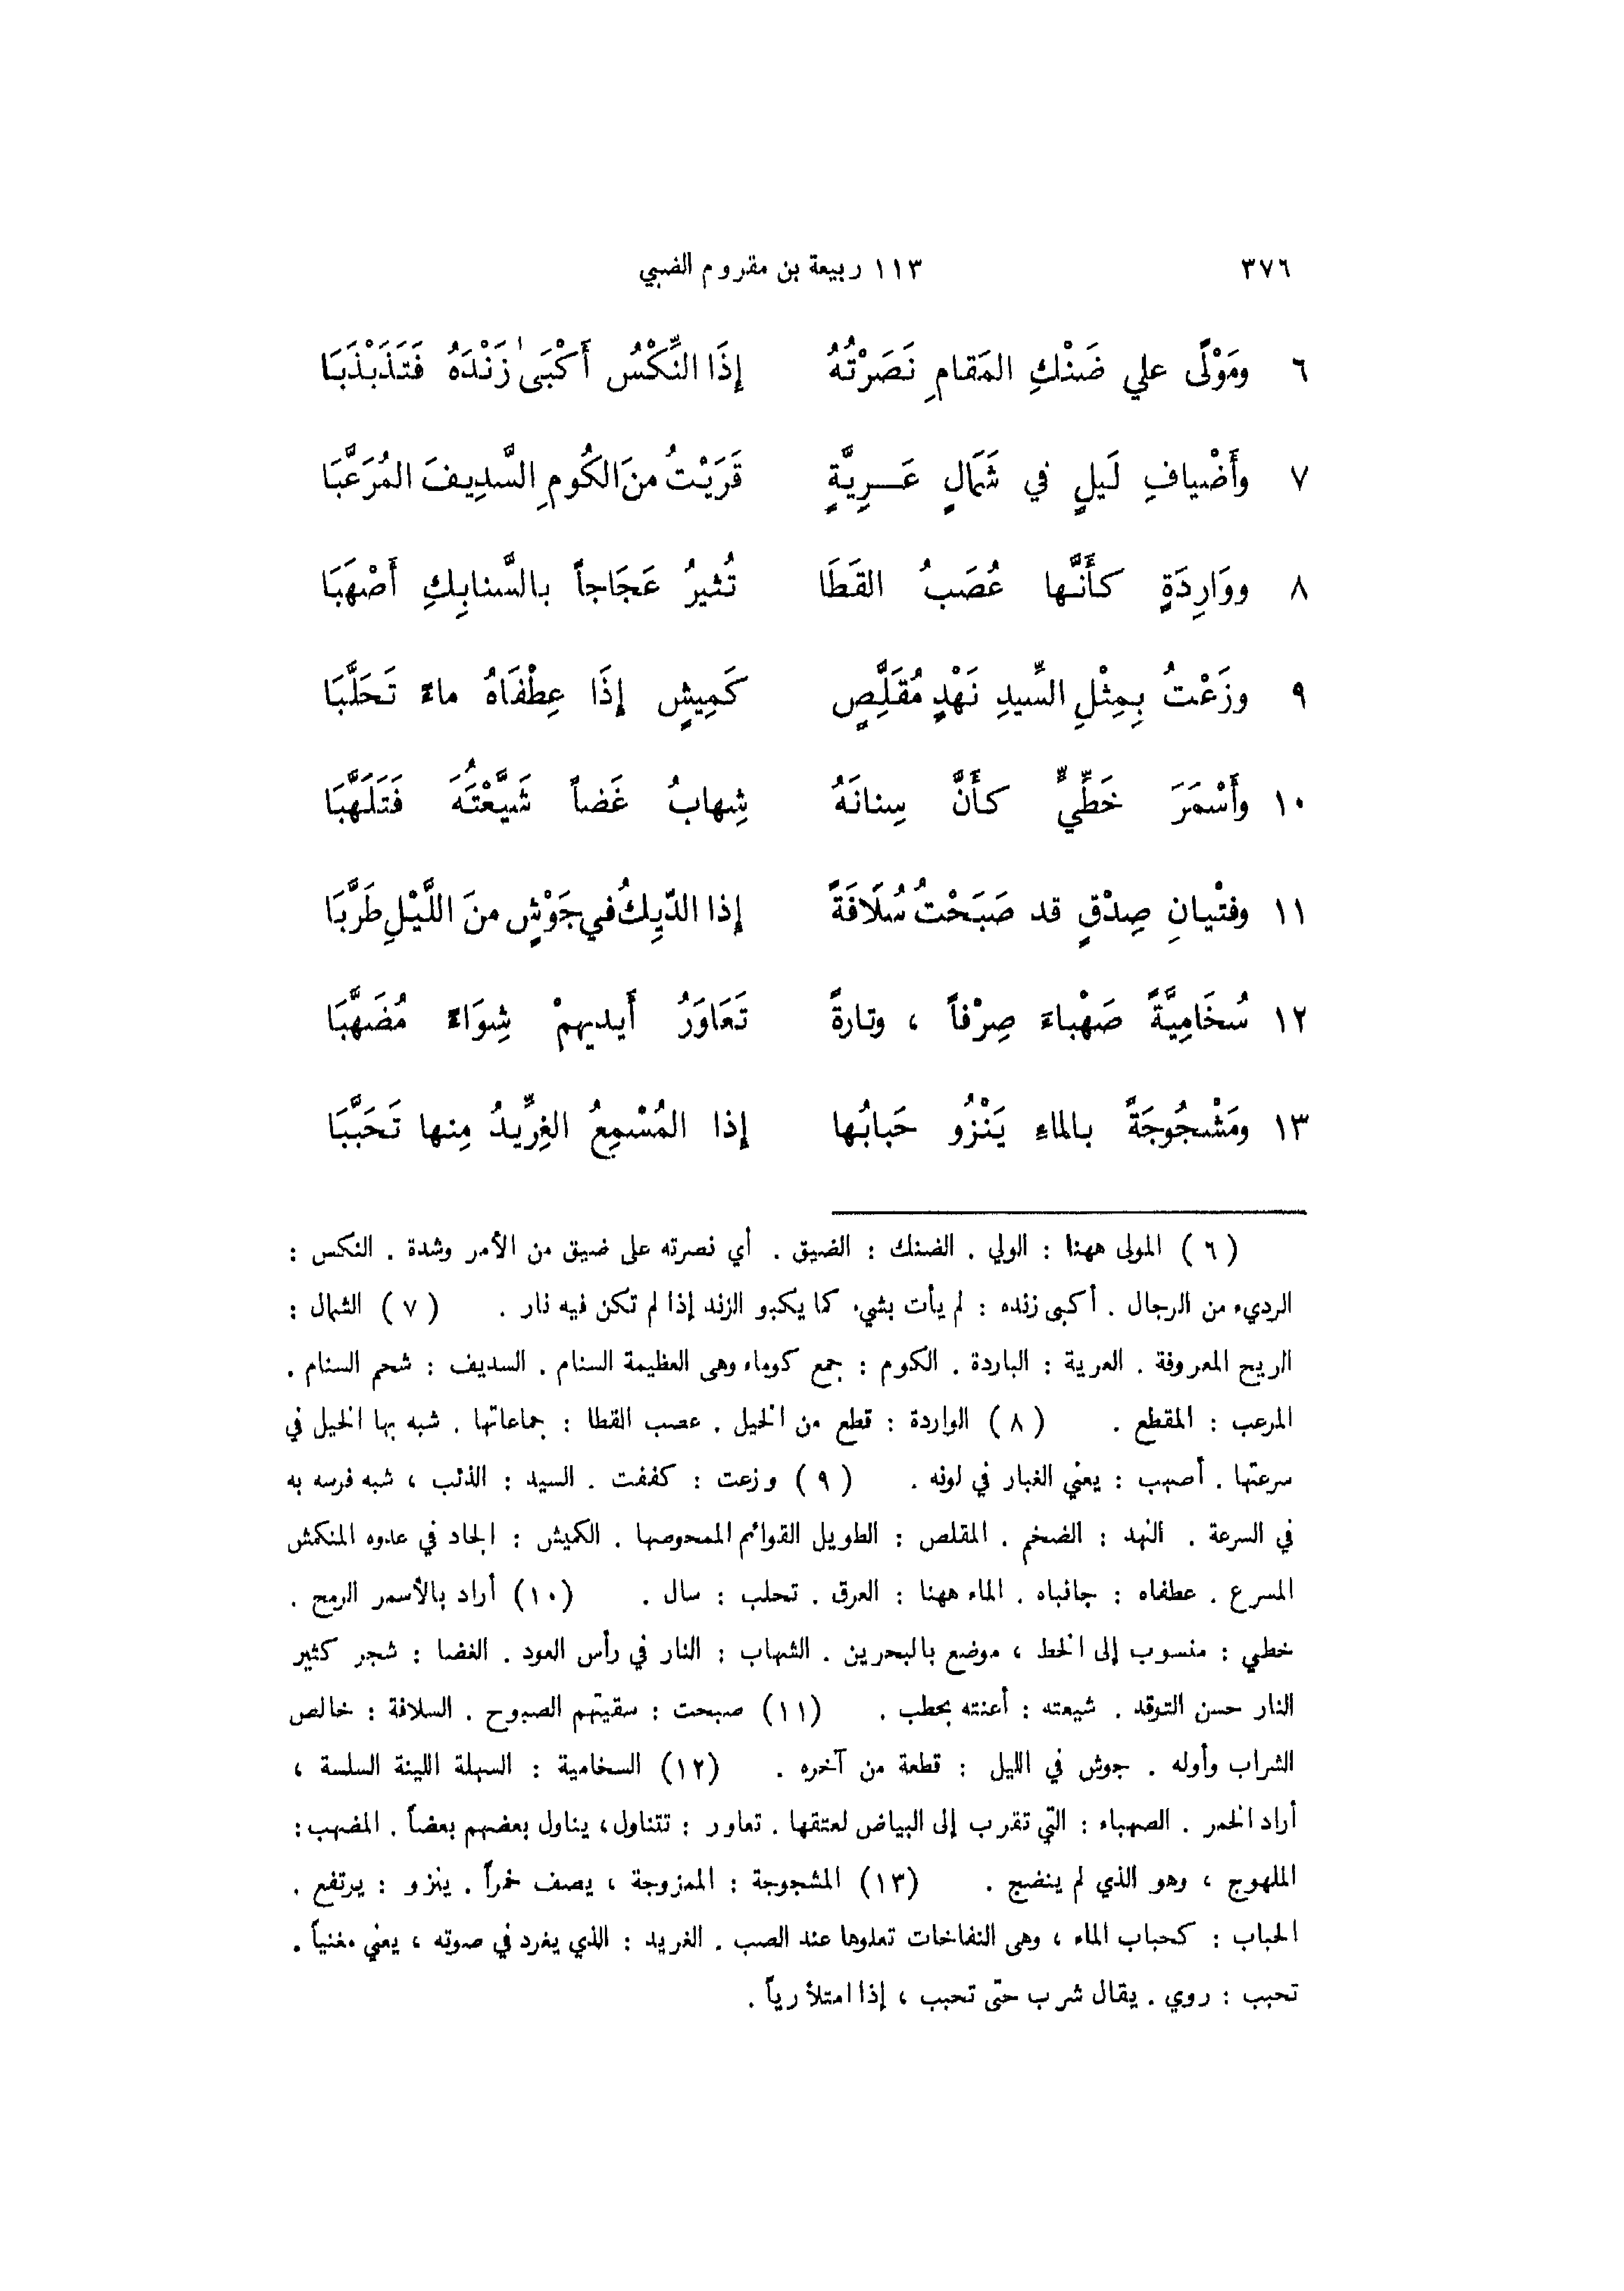 ٣٧٦ ١١٣ ربيعة بن مقروم الضبي
٦ ومَوْلًى علي ضَنْكِ المَقامِ نَصَرْتُهُ إِذَا النِّكْسُ أَكْبَىٰ زَنْدَهُ فَتَذَبْذَبَا
٧ وأَضْيافِ لَيلٍ في شَمَالٍ عَرِيَّةٍ قَرَيْتُ منَ الكُومِ السَّدِيفَ المُرَعَّبَا
٨ ووَارِدَةٍ كأَنَّها عُصَبُ القَطَا تُثيرُ عَجَاجاً بالسَّنابِكِ أَصْهَبَا
٩ وزَعْتُ بِمِثْلِ السِّيدِ نَهْدٍ مُقَلِّصٍ كَمِيشٍ إِذَا عِطْفَاهُ ماءً تَحَلَّبَا
١٠ وأَسْمَرَ خَطِّيٍّ كأَنَّ سِنانَهُ شِهابُ غَضاً شَيَّعْتَُهُ فَتَلَهَّبَا
١١ وفتْيانِ صِدْقٍ قد صَبَحْتُ سُلَافَةً إذا الدِّيكُ في جَوْشٍ منَ اللَّيْلِ طَرَّبَا
١٢ سُخَامِيَّةً صَهْباءَ صِرْفاً ، وتارةً تَعَاوَرُ أَيديهِمْ شِوَاءً مُضَهَّبَا
١٣ ومَشْجُوجَةً بالماءِ يَنْزُو حَبابُها إذا المُسْمِعُ الغِرِّيدُ مِنها تَحَبَّبَا
( ٦ ) المولى ههنا : الولي . الضنك : الضيق . أي نصرته على ضيق من الأمر وشدة . النكس :
الرديء من الرجال . أكبى زنده : لم يأت بشيء كما يكبو الزند إذا لم تكن فيه نار . ( ٧ ) الشمال :
الريح المعروفة . العرية : الباردة . الكوم : جمع كوماء وهى العظيمة السنام . السديف : شحم السنام .
المرعب : المقطع . ( ٨ ) الواردة : قطع من الخيل . عصب القطا : جماعاتها . شبه بها الخيل في
سرعتها . أصهب : يعني الغبار في لونه . ( ٩ ) وزعت : كففت . السيد : الذئب ، شبه فرسه به
في السرعة . النهد : الضخم . المقلص : الطويل القوائم الممحوصها . الكميش : الجاد في عدوه المنكمش
المسرع . عطفاه : جانباه . الماء ههنا : العرق . تحلب : سال . (١٠) أراد بالأسمر الرمح .
خطي : منسوب إلى الخط ، موضع بالبحرين . الشهاب : النار في رأس العود . الغضا : شجر كثير
النار حسن التوقد . شيعته : أعنته بحطب . (١١) صبحت : سقيتهم الصبوح . السلافة : خالص
الشراب وأوله . جوش في الليل : قطعة من آخره . (١٢) السخامية : السهلة اللينة السلسة ،
أراد الخمر . الصهباء : التي تقرب إلى البياض لعتقها . تعاور : تتناول، يناول بعضهم بعضاً . المضهب :
الملهوج ، وهو الذي لم ينضج . (١٣) المشجوجة : الممزوجة ، يصف خمراً . ينزو : يرتفع .
الحباب : كحباب الماء ، وهى النفاخات تعلوها عند الصب . الغريد : الذي يغرد في صوته ، يعني مغنياً .
تحبب : روي . يقال شرب حتى تحبب ، إذا امتلأ رياً .